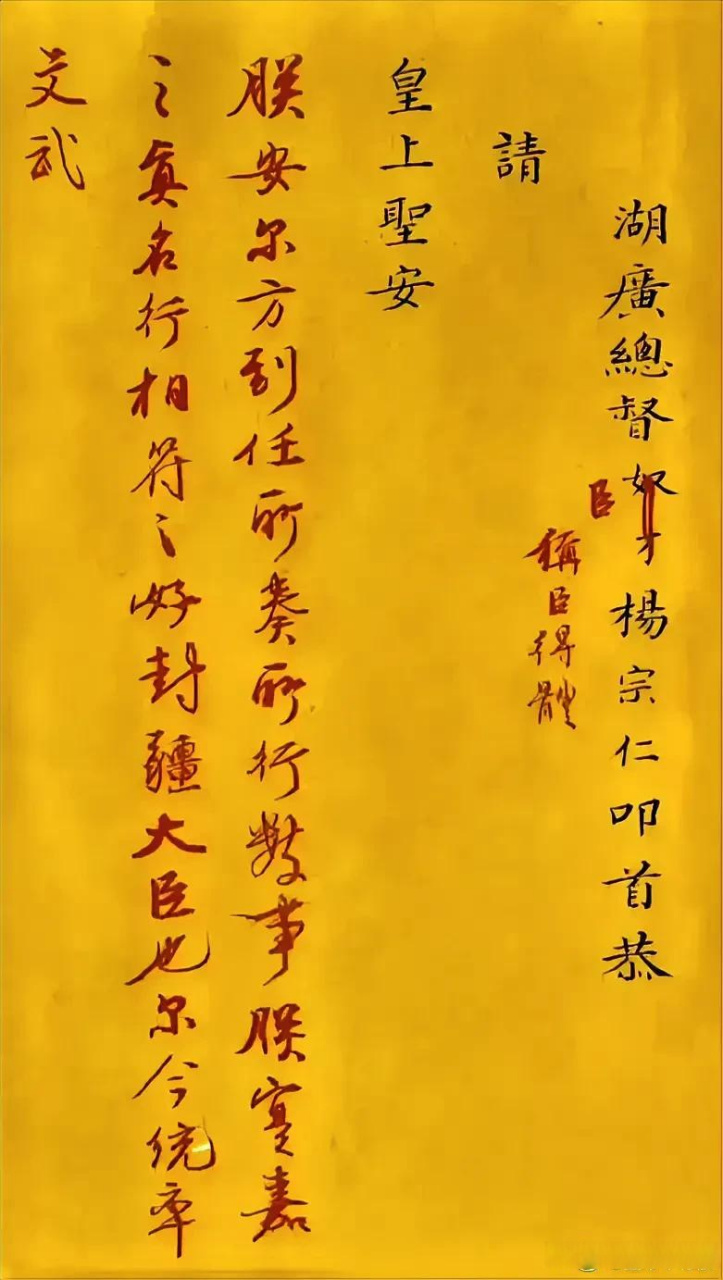 湖廣總督奴才楊宗仁叩首恭
臣
稱臣得體
請
皇上聖安
朕安尔方到任所奏所行數事朕寔嘉
之真名行相符之好封疆大臣也尔今統率
文武